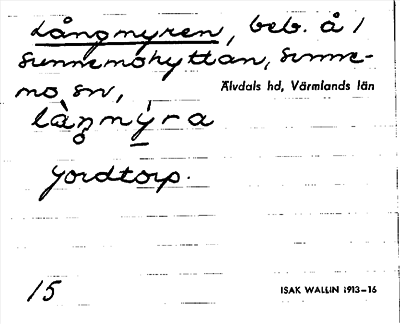 Långmyren, beb. å /
Sunnemohyttan, Sunne-
mo sn,
Älvdals hd, Värmlands län
làŋmẏ̠ra
Jordtorp.
15
ISAK WALLIN 1913-16